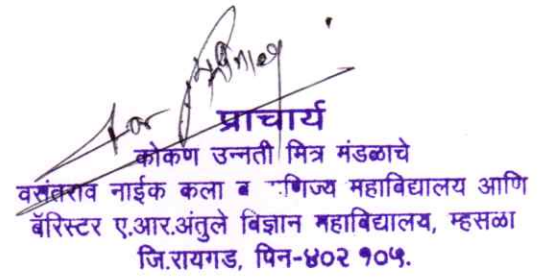 For
प्राचार्य
कोकण उन्नती मित्र मंडळाचे
वसंतराव नाईक कला व णिज्य महाविद्यालय आणि
बॅरिस्टर ए.आर.अंतुले विज्ञान महाविद्यालय, म्हसळा
जि.रायगड, पिन-४०२ १०५.